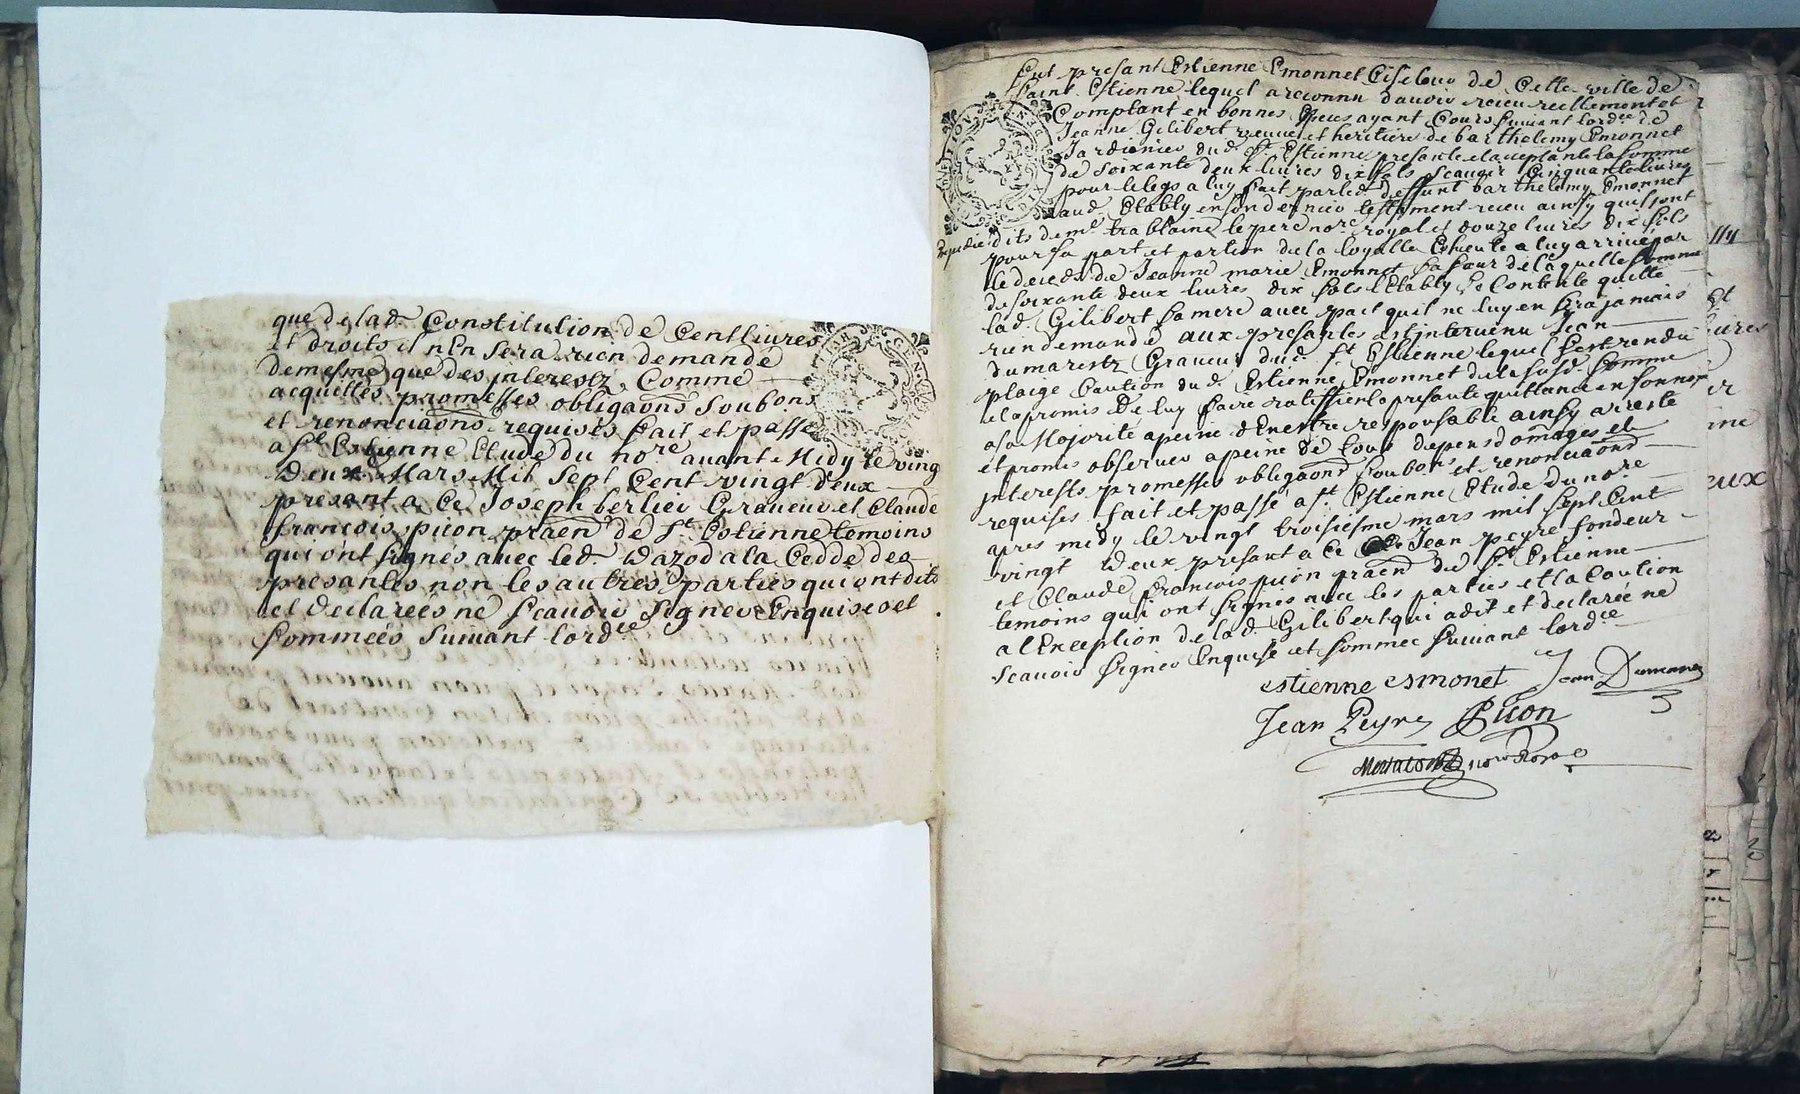 que de lad. Constitution de Cent livres
et droits il n'En sera rien demande
demesme que des jnterestz, Comme
acquittés promesses obligaons soubons
et renonciaons requises fait et passé
a St Estienne Etude du nore avant Midy le ving
deux Mars Mil sept Cent vingt deux
présant a Ce Joseph berlier Graveur et Claude
françois puon praēn de St Estienne temoins
qui ont signés avec led. Dazod a la Cedde des
presantes non les autres parties qui ont dits
et declarees ne scavoir signer Enquises et
sommées suivant lordce
fut presant Estienne Emonnet Ciseleur de Cette ville de
saint Estienne lequel a reconnu d'avoir receu reellement et
Comptant en bonnes Especes ayant Cours suivant lordce de
Jeanne Gilibert veuve et heritiere de barthelemy Emonnet
Jardinier dud. St Estienne presante et aceptante la somme
de soixante deux livres dix sols scavoir Cinquante livres
pour le legs a luy fait par led. deffunt barthelemy Emonnet
aud. Etably en son dernier testament receu ainsy quils ont
dits de me trablaine le pere nore royal et douze livres dix sols
pour sa part et portion de la loyalle Echeute a luy arrivee par
le deceds de Jeanne marie Emonnet sa sœur de laquelle somme
de soixante deux livres dix sols l'Etably se Contente quitte
lad. Gilibert sa mere avec pact quil ne luy en sera jamais
rien demandé aux presantes est intervenu Jean
dumarestz Graveur dud. St Estienne lequel sest rendu
plaige Caution dud. Estienne Emonnet de la susd. somme
et a promis De luy faire ratiffier la presante quittance en son nom
a sa Majorité a peine d'En estre responsable ainsy arresté
et promis observer a peine de tous depens domages et
jnterests promesses obligaons soubons et renonciaons
requises fait et passé a St Estienne Etude du nore
apres midy le vingt troisiesme mars mil sept Cent
vingt deux presant a Ce Jean peyre fondeur
et Claude francois puon praēn de St Estienne
temoins qui ont signés avec les parties et la Caution
a l'Exception de lad. Gilibert qui a dit et declaréé ne
scavoir signer Enquise et sommee suivant lordce
estienne esmonet Jean Dumarest
Jean Peyre Puon
nore Royal